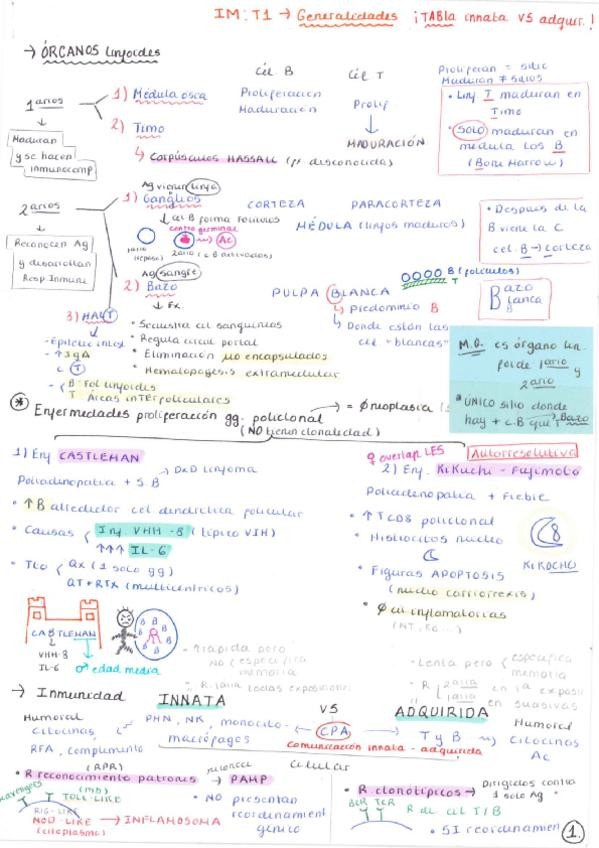 IM: T1 → Generalidades ¡TABla innata vs adquir.!
→ ÓRGANOS linfoides
Cél. B Cél T
Proliferan = sitio
Maduran ≠ sitios
1 arios
1) Médula ósea Proliferación Maduración Prolif
2) Timo MADURACIÓN
↳ Corpúsculos HASSALL (f desconocida)
Maduran y se hacen inmunocomp
• Linf T maduran en Timo
• SOLO maduran en médula los B (Bone Marrow)
2 arios
Reconocen Ag y desarrollan Resp Inmune
Ag vienen linfa
1) Ganglios CORTEZA PARACORTEZA
↳ cél B forma folículos MÉDULA (linfos maduros)
centro germinal
1ario (reposo)
Ac
2ario (c B activados)
• Después de la B viene la C
cél. B → corteza
Ag sangre
2) Bazo PULPA BLANCA
B (folículos)
T
↳ Fx.
↳ Predominio B
↳ Donde están las cél. "blancas"
Bazo
Blanca
B
• Secuestra cél sanguíneas
• Regula circul portal
• Eliminación µo encapsulados
• Hematopoyesis extramedular
3) MALT
- Epitelio intest
- ↑ IgA
- c T
- B: Fol linfoides
T Áreas inTERfoliculares
M.O. es órgano linfoide 1ario y 2ario
* ÚNICO sitio donde hay + c.B que T
Bazo
* Enfermedades proliferación gg. policlonal → = Ø neoplasia
(NO tienen clonalidad)
1) Enf CASTLEMAN
→ DxD linfoma
Poliadenopatía + S.B
• ↑ B alrededor cel dendrítica folicular
• Causas Inf VHH-8 (típico VIH)
↑↑↑ IL-6
• Tto Qx (1 solo gg)
QT + RTX (multicéntricos)
CASTLEMAN
VHH-8
IL-6
♂ edad media
B
♀ overlap LES
Autorresolutiva
2) Enf. KiKuchi - Fujimoto
Poliadenopatía + Fiebre
• ↑ TCD8 policlonal
• Histiocitos núcleo
• Figuras APOPTOSIS
(núcleo cariorrexis)
• Ø cél inflamatorias
8
KiKOCHO
- + rápida pero
NO específica
memoria
- R igual todas exposiciones
- Lenta pero específica
memoria
- R 2aria en 1ª exposi
1aria en sucesivas
→ Inmunidad INNATA VS ADQUIRIDA
Humoral
Citocinas, PMN, NK, monocito-macrófagos
RFA, complemento
(APR)
CPA
Comunicación innata - adquirida
T y B
Humoral
Citocinas
Ac
Celular
• R reconocimiento patrones → PAMP
(mb)
reconoce
Scavengers
TOLL-LIKE
RIG-LIKE
NOD-LIKE → INFLAMOSOMA
(citoplasma)
• NO presentan reordenamiento génico
• R clonotípicos → Dirigidos contra 1 solo Ag
BCR TCR
R de cél T/B
• SI reordenamien
1.